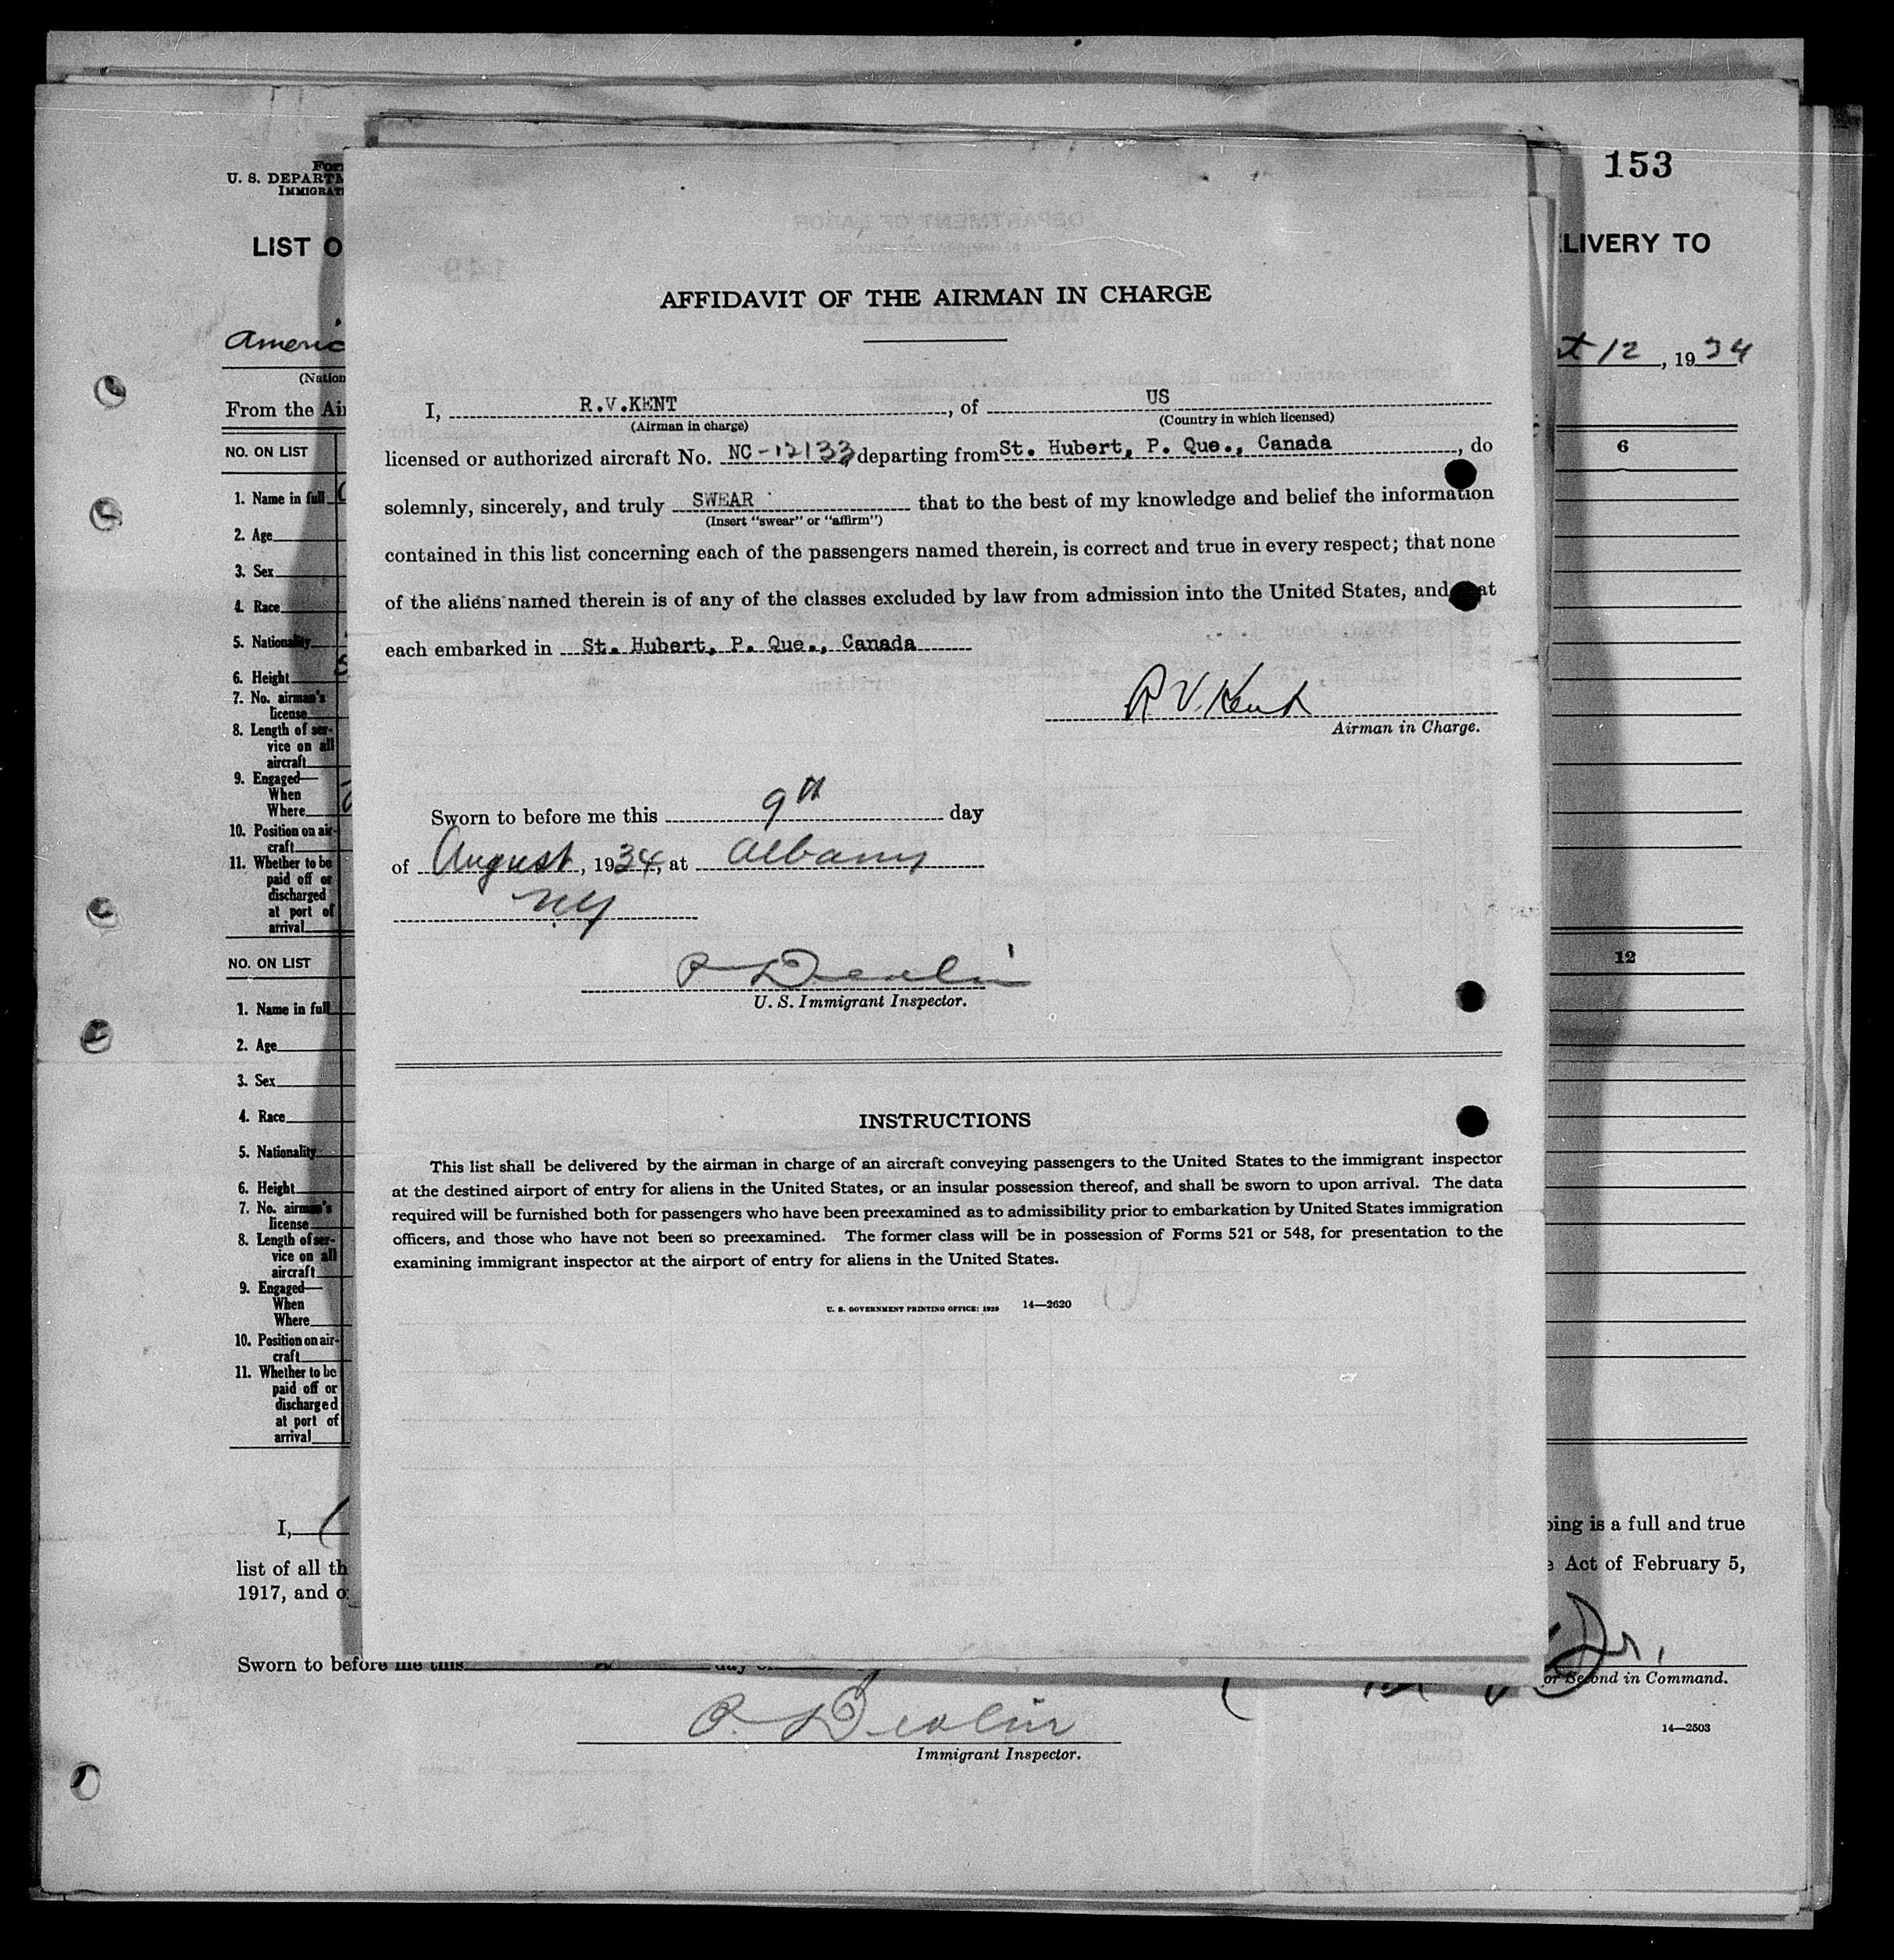 153
U. S. DEPARTM
IMMIGRAT
LIST O
LIVERY TO
Americ
12, 1934
(Nation
From the Air
NO. ON LIST
6
1. Name in full
2. Age
3. Sex
4. Race
5. Nationality
6. Height
7. No. airman's
license
8. Length of ser-
vice on all
aircraft
9. Engaged—
When
Where
10. Position on air-
craft
11. Whether to be
paid off or
discharged
at port of
arrival
NO. ON LIST
12
1. Name in full
2. Age
3. Sex
4. Race
5. Nationality
6. Height
7. No. airman's
license
8. Length of ser-
vice on all
aircraft
9. Engaged—
When
Where
10. Position on air-
craft
11. Whether to be
paid off or
discharged
at port of
arrival
AFFIDAVIT OF THE AIRMAN IN CHARGE
I, R.V.KENT, of US
(Airman in charge) (Country in which licensed)
licensed or authorized aircraft No. NC-12133, departing from St. Hubert, P. Que., Canada, do
solemnly, sincerely, and truly SWEAR that to the best of my knowledge and belief the information
(Insert "swear" or "affirm")
contained in this list concerning each of the passengers named therein, is correct and true in every respect; that none
of the aliens named therein is of any of the classes excluded by law from admission into the United States, and that
each embarked in St. Hubert, P. Que., Canada
R V. Kent
Airman in Charge.
Sworn to before me this 9th day
of August, 1934, at Albany
NY
P Devlin
U. S. Immigrant Inspector.
INSTRUCTIONS
This list shall be delivered by the airman in charge of an aircraft conveying passengers to the United States to the immigrant inspector
at the destined airport of entry for aliens in the United States, or an insular possession thereof, and shall be sworn to upon arrival. The data
required will be furnished both for passengers who have been preexamined as to admissibility prior to embarkation by United States immigration
officers, and those who have not been so preexamined. The former class will be in possession of Forms 521 or 548, for presentation to the
examining immigrant inspector at the airport of entry for aliens in the United States.
U. S. GOVERNMENT PRINTING OFFICE: 1929 14—2620
I,
oing is a full and true
list of all th
e Act of February 5,
1917, and o
Sworn to before me this day of
or Second in Command.
P. Devlin
Immigrant Inspector.
14—2503